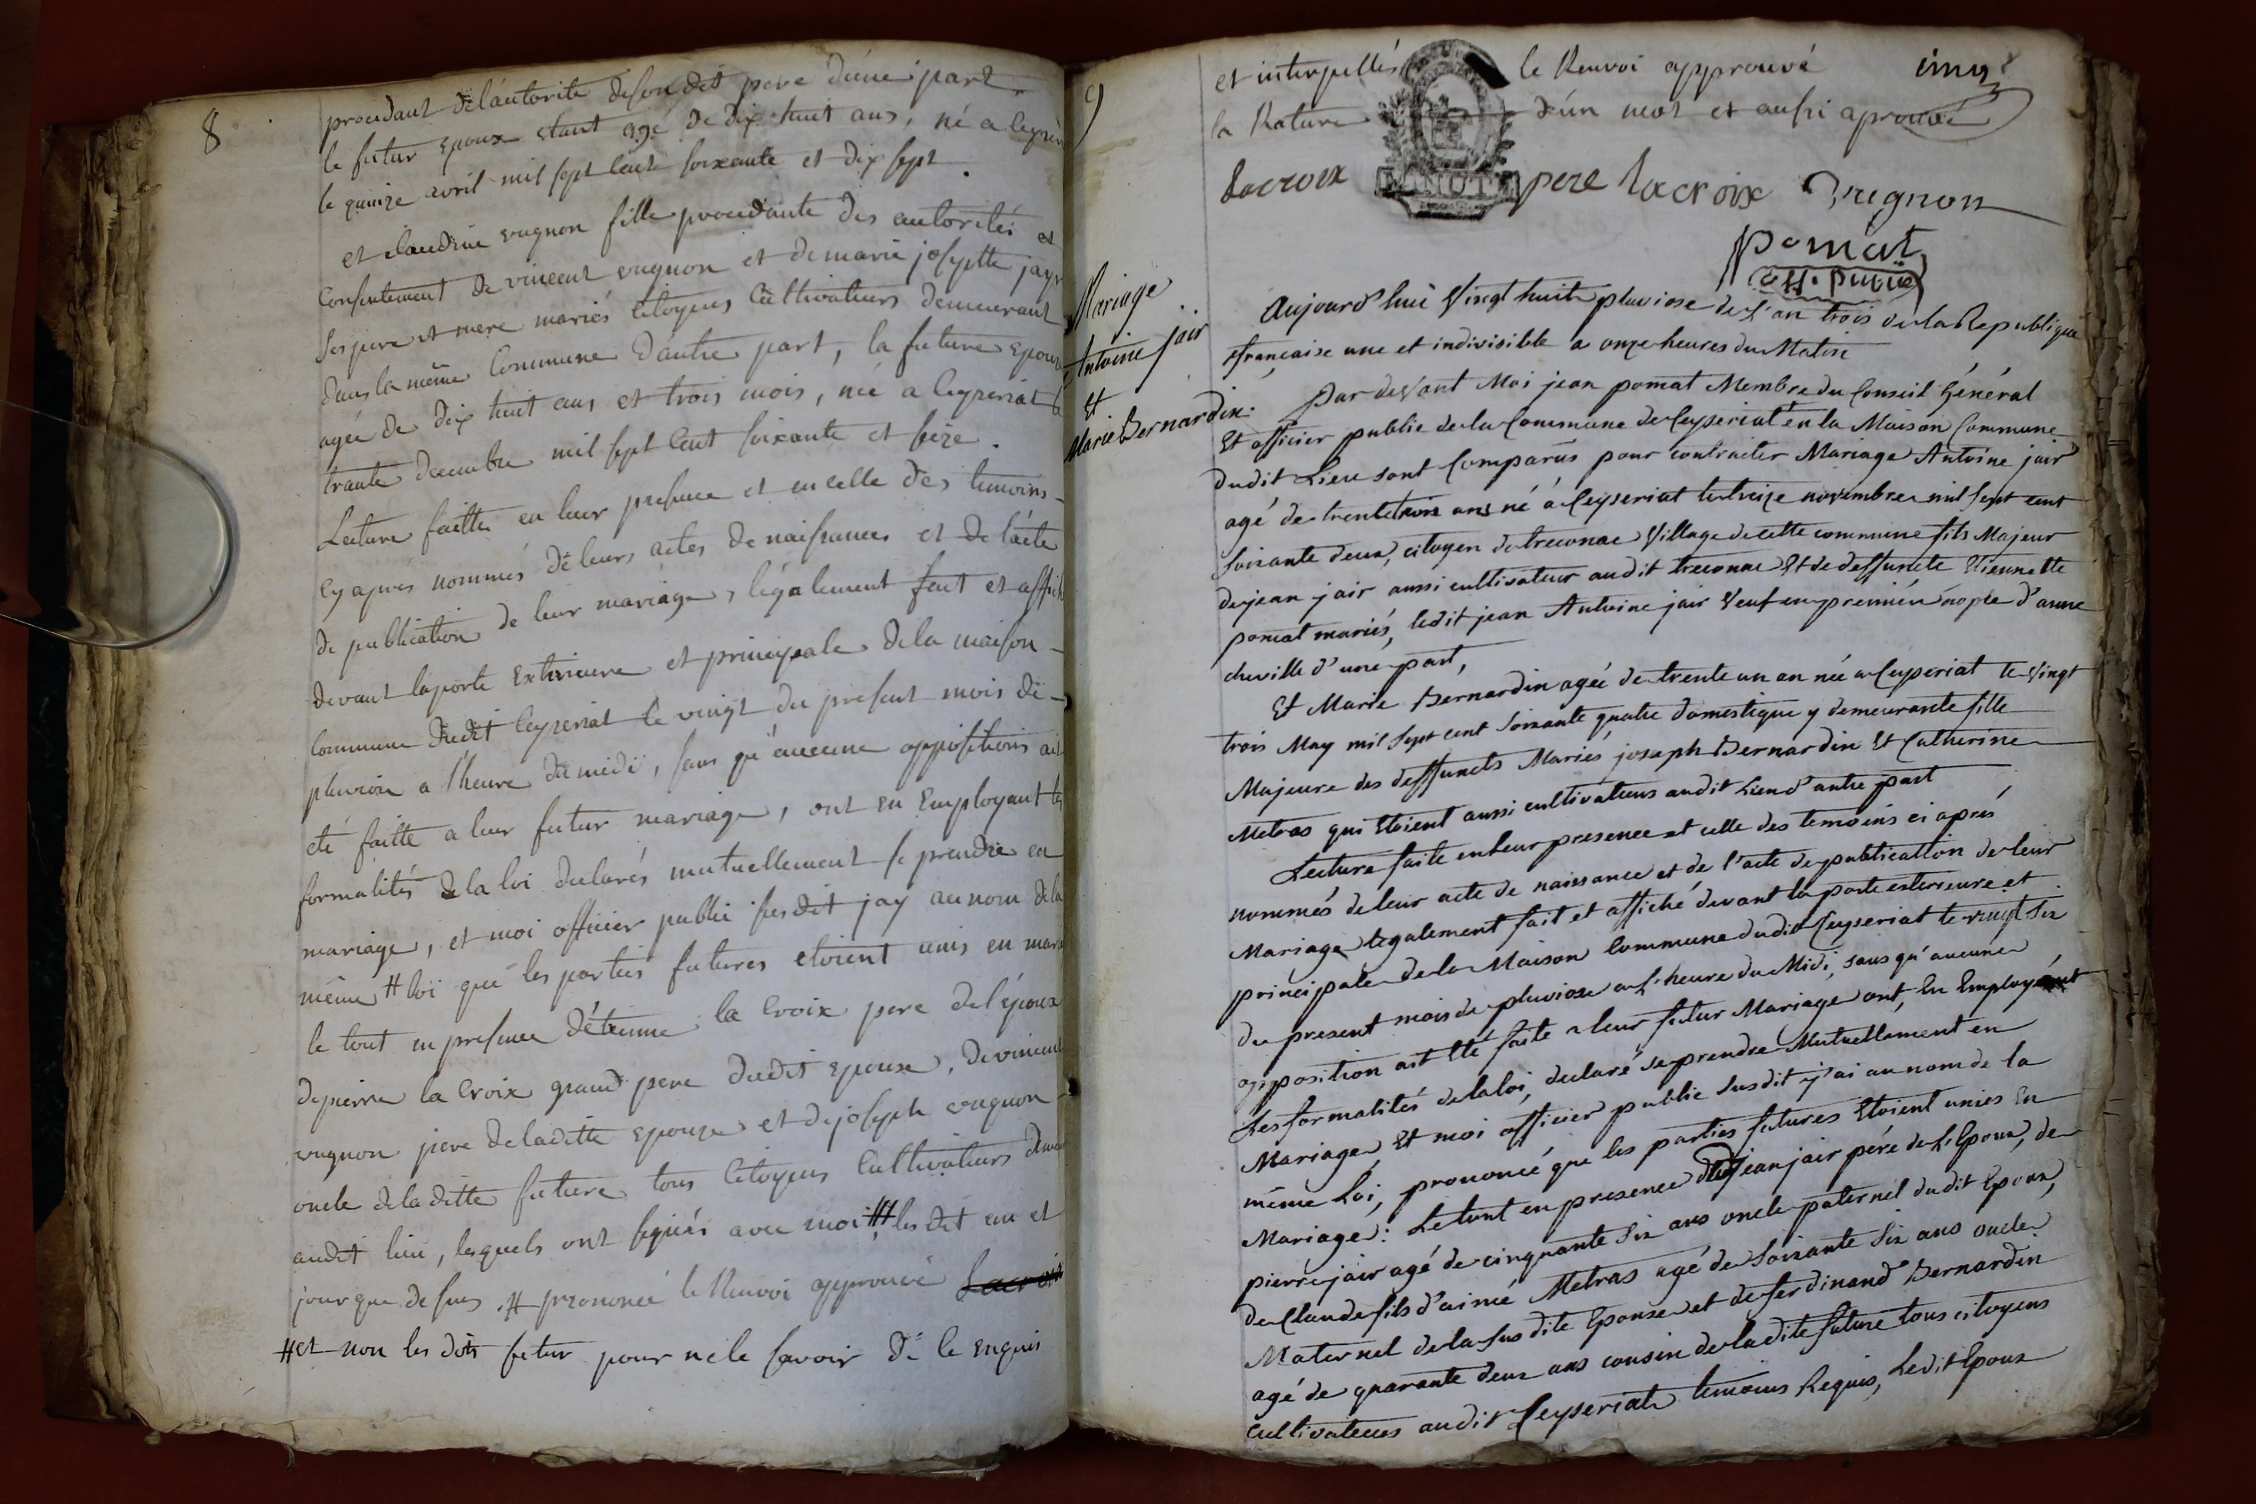 8
procedant de l'autorité de son dit pere d'une part,
le futur epoux etant agé de dix huit ans, né a
le quinze avril mil sept cent soixante et dix sept.
et claudine vugnon fille procedante des autorités et
consentement de vincent vugnon et de marie josephte
ses pere et mere mariés citoyens cultivateurs demeurant
dans la même commune d'autre part, la future epouse
agée de dix huit ans et trois mois, née a ceyzeriat le
trante decembre mil sept cent soixante et seize.
Lecture faitte en leur presence et en celle des temoins
cy après nommés de leurs actes de naissances et de l'acte
de publication de leur mariage, légalement fait et affiché
devant la porte exterieure et principale de la maison
commune dudit ceyzeriat le vingt du present mois de
pluviose a l'heure du midi, sans qu'aucune oppositions ait
eté faitte a leur futur mariage, ont en employant les
formalités de la loi declarés mutuellement se prendre en
mariage, et moi officier public susdit j'ay au nom de la
même # loi que les parties futures etoient unis en
le tout en presence d'étienne la croix pere de l'époux
de pierre la croix grand pere dudit epoux, de vincent
vugnon pere de laditte epouze et de joseph vugnon
oncle de laditte future tous citoyens cultivateurs
audit lieu, lesquels ont signés avec moi # les dit an et
jour que dessus. # prononcé le renvoi approuvé Lacroix
# et non les dits futur pour ne le savoir de ce enquis
9
et interpellés le Renvoi approuvé
la Rature d'un mot et aussi aprouvé
Lacroix pere lacroix vugnon
pomat
off. public
Mariage
Antoine jair
Et
Marie Bernardin.
Aujourd'hui Vingt huit pluviose de l'an trois de la Republique
française une et indivisible a onze heures du Matin
Par devant Moi jean pomat Membre du Conseil Général
Et officier public de la Commune de Ceyseriat en la Maison Commune
dudit Lieu sont Comparus pour contracter Mariage Antoine jair
agé de trente trois ans né à Ceyseriat le treize novembre mil sept cent
soixante deux, citoyen de treconac Village de cette commune fils Majeur
de jean jair aussi cultivateur audit treconac Et de deffuncte Etiennette
pomat mariés, ledit jean Antoine jair Veuf en premiér nopce d'anne
cheville d'une part,
Et Marie Bernardin agée de trente un an née a Ceyseriat le Vingt
trois May mil sept cent soixante quatre domestique y demeurante fille
Majeure des deffuncts Mariés joseph Bernardin Et Catherine
Metras qui Etoient aussi cultivateurs audit Lieu d'autre part
Lecture faite en leur presence et celle des temoins ci aprés
nommés de leur acte de naissance et de l'acte de publication de leur
Mariage legalement fait et affiché devant la porte exterieure et
principale de la Maison Commune dudit Ceyseriat le vingt six
du present mois de pluviose a L'heure du Midi, sans qu'aucune
opposition ait Eté faite a leur futur Mariage ont, En Employant
Les formalités de la loi, declaré se prendre Mutuellement en
Mariage, Et moi officier public susdit j'ai au nom de la
même Loi, prononcé que les parties futures Etoient unies En
Mariage: Le tout en presence de jean jair pére de L'Epoux, de
pierre jair agé de cinquante six ans oncle paternel dudit Epoux,
de Claude fils d'aimé Metras agé de soixante six ans oncle
Maternel de la susdite Epouse et de ferdinand Bernardin
agé de quarante deux ans cousin de ladite future tous citoyens
cultivateurs audit Ceyseriat temoins Requis, Ledit Epoux